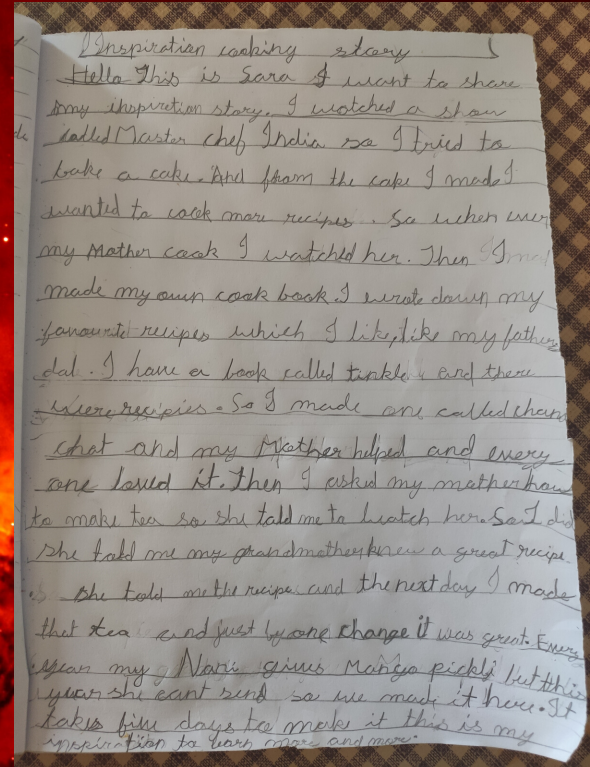 Inspiration cooking story
Hello This is Sara I want to share
my inspiration story. I wotched a show
called Master chef India so I tried to
bake a cake. And from the cake I made I
wanted to cook more recipes. So when ever
my Mother cook I watched her. Then I
made my own cook book. I wrote down my
favourite recipes which I like, like my fathers
dal. I have a book called tinkle and there
were recipies. So I made one called chana
chat and my Mother helped and every
one loved it. Then I asked my mother how
to make tea so she told me to watch her. So I did
She told me my grandmother knew a great recipe
She told me the recipe and the next day I made
that tea and just by one change it was great. Every
year my Nani gives Mango pickle but this
year she cant send so we made it here. It
takes five days to make it this is my
inspiration to learn more and more.